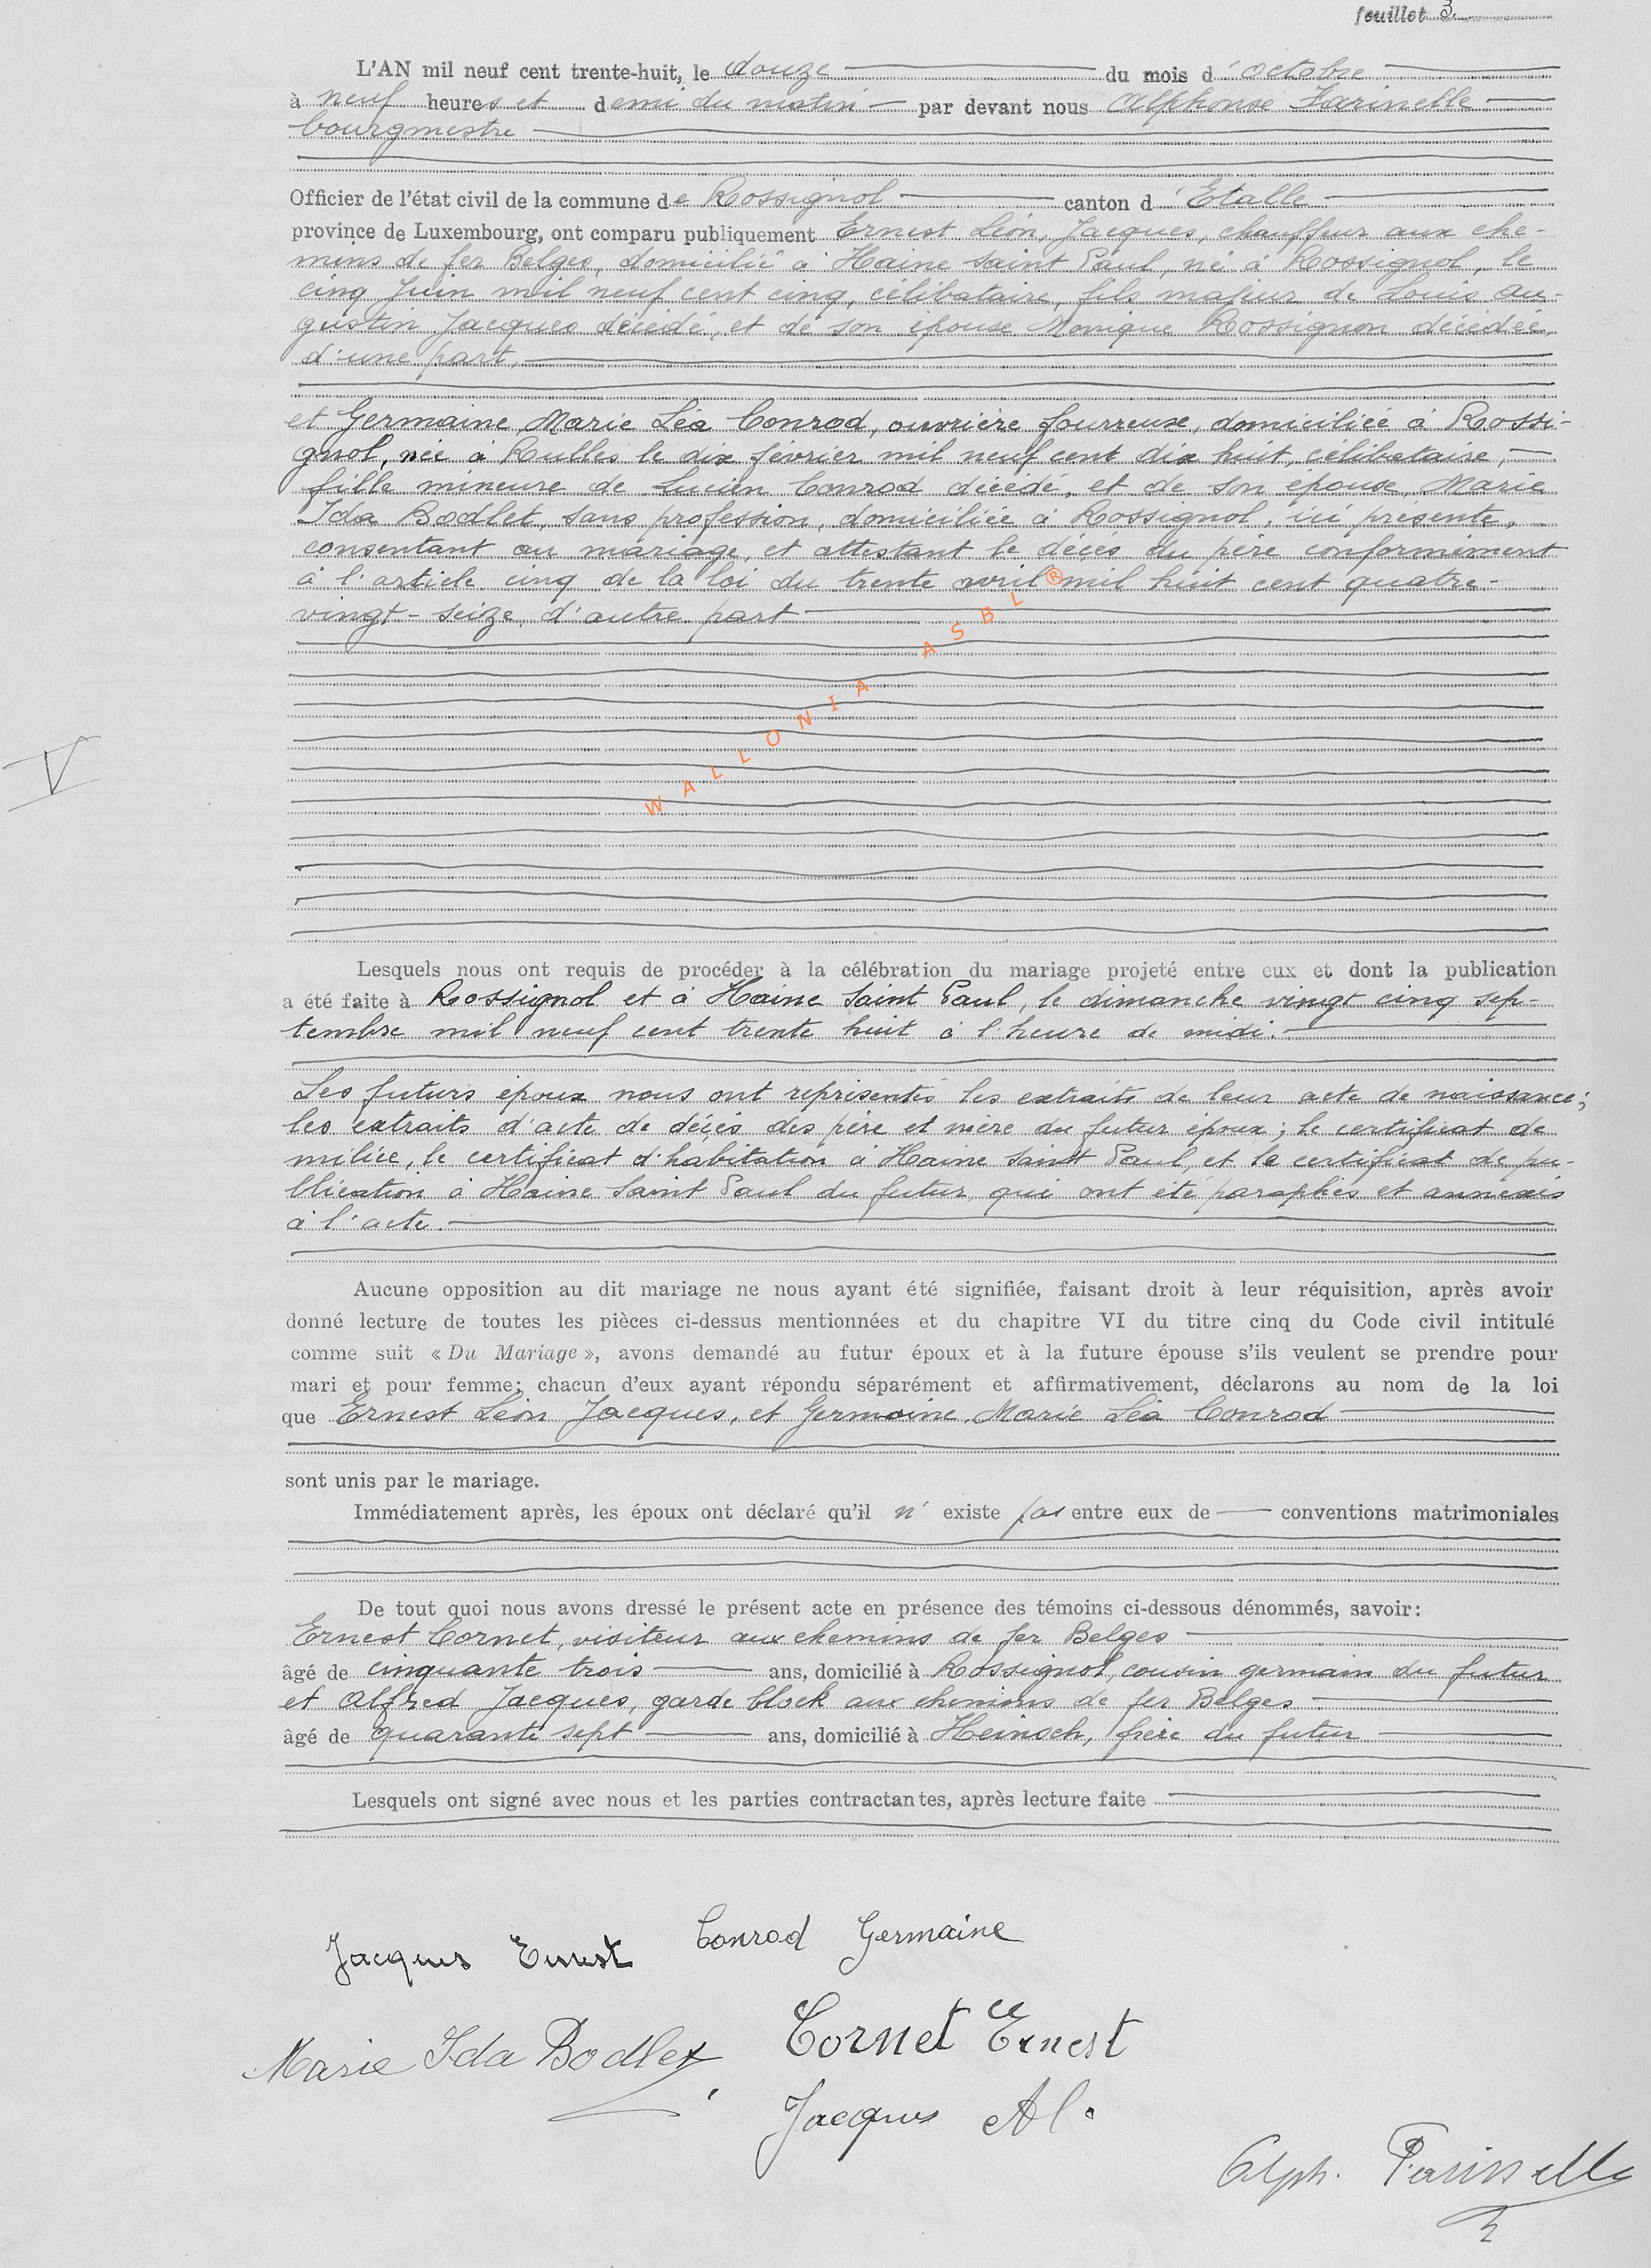 feuillet 3.
L'AN mil neuf cent trente-huit, le douze du mois d'octobre
à neuf heures et demi du matin par devant nous Alphonse Farinelle
bourgmestre
Officier de l'état civil de la commune de Rossignol canton d'Etalle
province de Luxembourg, ont comparu publiquement Ernest Léon, Jacques, chauffeur aux che-
mins de fer Belges, domicilié à Haine Saint Paul, né à Rossignol, le
cinq Juin mil neuf cent cinq, célibataire, fils majeur de Louis Au-
gustin Jacques décédé, et de son épouse Monique Rossignon décédée,
d'une part,
et Germaine, Marie Léa Conrod, ouvrière fourreuse, domiciliée à Rossi-
gnol, née à Rulles le dix février mil neuf cent dix huit, célibataire,
fille mineure de Lucien Conrod décédé, et de son épouse, Marie
Ida Bodlet, sans profession, domiciliée à Rossignol, ici présente,
consentant au mariage, et attestant le décès du père conformément
à l'article cinq de la loi du trente avril mil huit cent quatre-
vingt-seize, d'autre part
WALLONIA ASBL ®
V
Lesquels nous ont requis de procéder à la célébration du mariage projeté entre eux et dont la publication
a été faite à Rossignol et à Haine Saint Paul, le dimanche vingt cinq sep-
tembre mil neuf cent trente huit à l'heure de midi.
Les futurs époux nous ont représentés les extraits de leur acte de naissance;
les extraits d'acte de décès des père et mère du futur époux; le certificat de
milice, le certificat d'habitation à Haine Saint Paul, et le certificat de pu-
blication à Haine Saint Paul du futur, qui ont été paraphés et annexés
à l'acte.
Aucune opposition au dit mariage ne nous ayant été signifiée, faisant droit à leur réquisition, après avoir
donné lecture de toutes les pièces ci-dessus mentionnées et du chapitre VI du titre cinq du Code civil intitulé
comme suit « Du Mariage », avons demandé au futur époux et à la future épouse s'ils veulent se prendre pour
mari et pour femme; chacun d'eux ayant répondu séparément et affirmativement, déclarons au nom de la loi
que Ernest Léon Jacques, et Germaine, Marie Léa Conrod
sont unis par le mariage.
Immédiatement après, les époux ont déclaré qu'il n'existe pas entre eux de conventions matrimoniales
De tout quoi nous avons dressé le présent acte en présence des témoins ci-dessous dénommés, savoir:
Ernest Cornet, visiteur aux chemins de fer Belges
âgé de cinquante trois ans, domicilié à Rossignol, cousin germain du futur
et Alfred Jacques, garde block aux chemins de fer Belges
âgé de quarante sept ans, domicilié à Heinsch, frère du futur
Lesquels ont signé avec nous et les parties contractantes, après lecture faite
Jacques Ernest Conrod Germaine
Marie Ida Bodlet Cornet Ernest
Jacques Al.
Alph. Farinelle